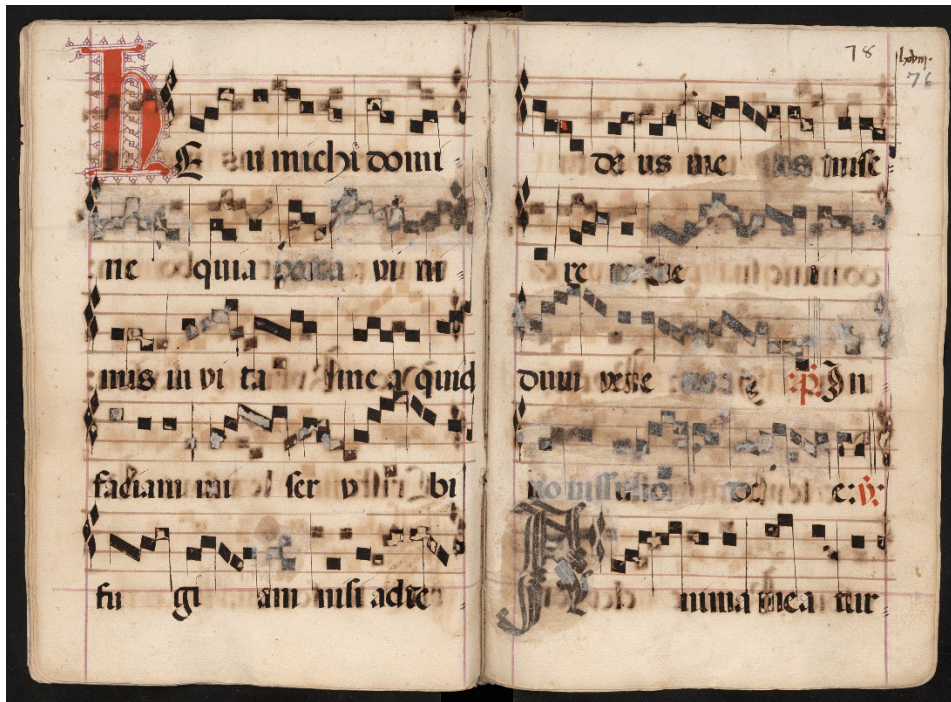 hE u michi domi
ne quia pecca vi ni
mis in vi ta me a quid
faciam mi ser v bi
fu gi am nisi ad te
78
76
de us me us mise
re me
dum vene :p: In
no vissimo di e: v:
A nima mea tur